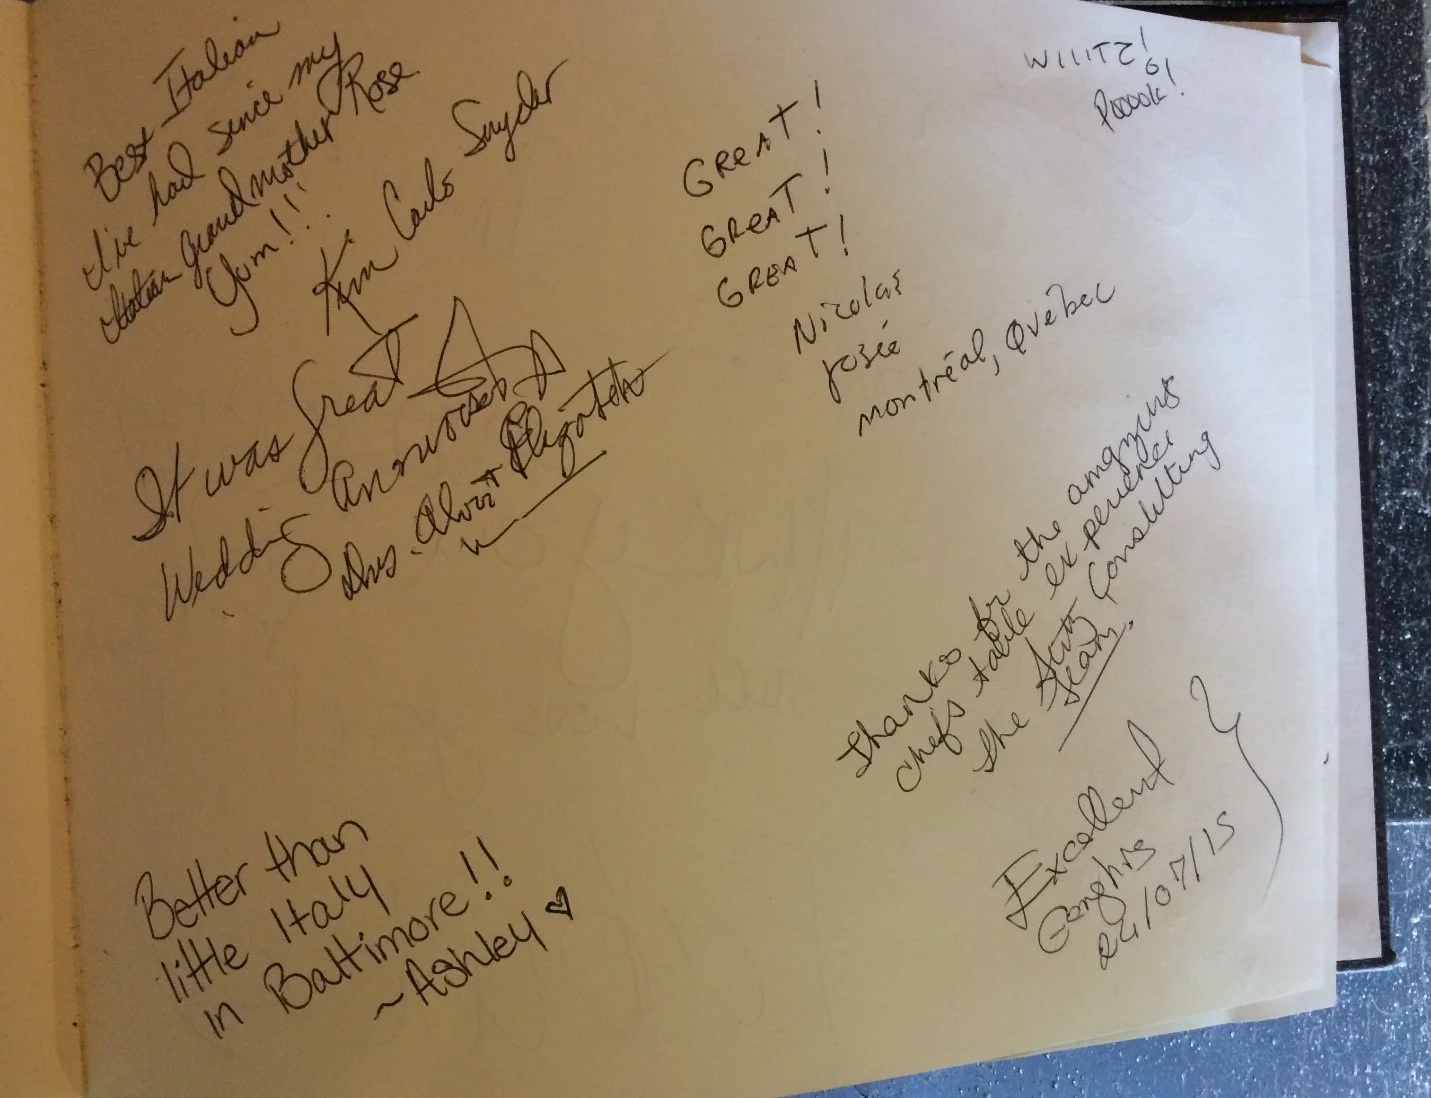 Best Italian
I've had since my
Italian grandmother Rose.
Yum!!
Kim Carlo Snyder
It was great
Wedding
Drs.
Better than
little Italy
in Baltimore!!
~Ashley ♡
GREAT!
GREAT!
GREAT!
Nicolas
Josée
Montréal, Québec
Thanks for the amazing
chefs table experience
The Consulting
Team.
Excellent
24/07/15